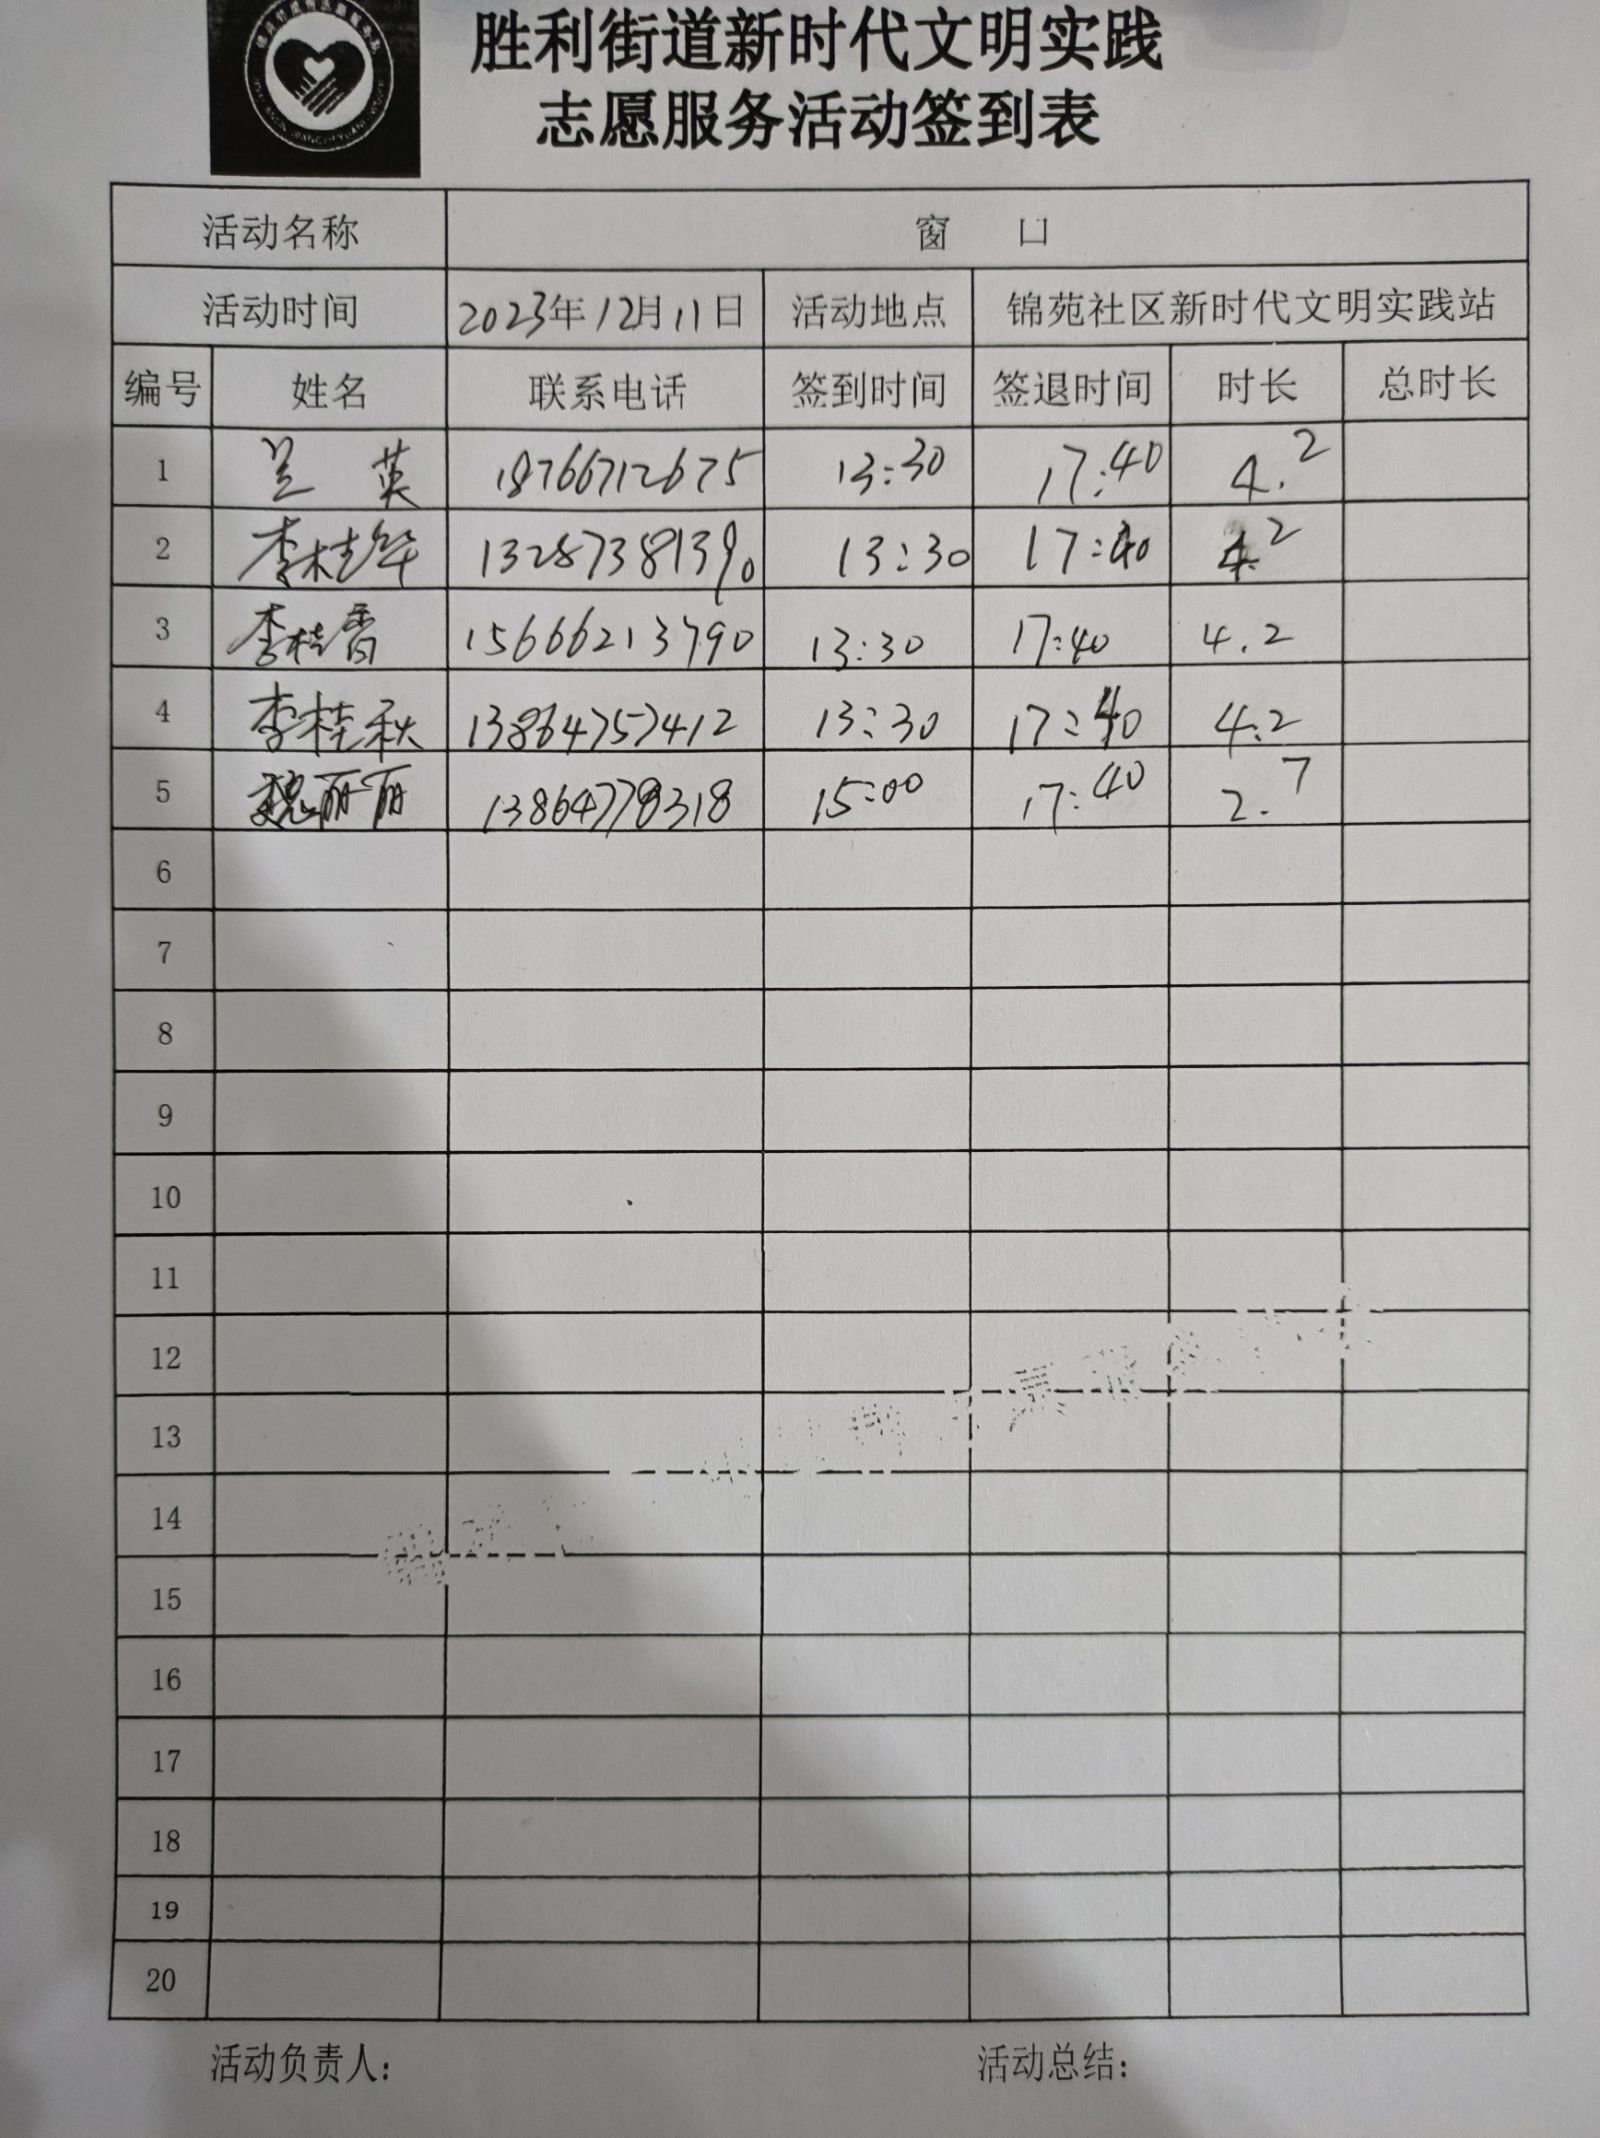 胜利街道新时代文明实践
志愿服务活动签到表
活动名称 窗 口
活动时间 2023年12月11日 活动地点 锦苑社区新时代文明实践站
编号 姓名 联系电话 签到时间 签退时间 时长 总时长
1 兰 英 18766712675 13:30 17:40 4.2
2 李桂华 13287381390 13:30 17:40 4.2
3 李桂香 15666213790 13:30 17:40 4.2
4 李桂秋 13864757412 13:30 17:40 4.2
5 魏丽丽 13864778318 15:00 17:40 2.7
6
7
8
9
10
11
12
13
14
15
16
17
18
19
20
活动负责人: 活动总结: